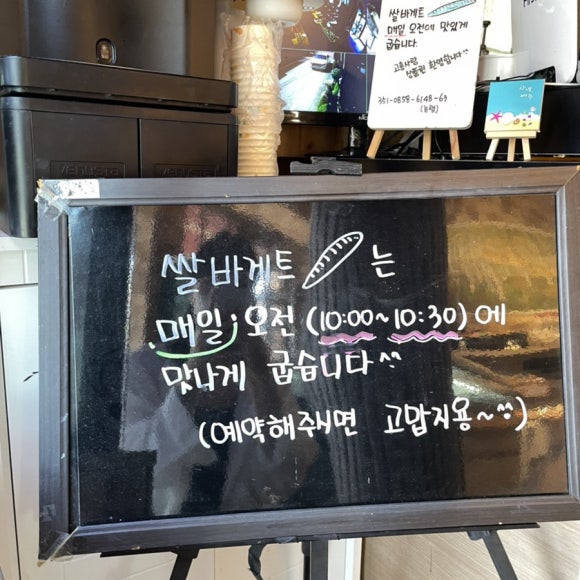 쌀바게트
매일 오전에 맛있게
굽습니다.
고흥사랑
상품권 환영합니다^^
351-0858-6148-63
(농협)
쌀바게트 는
매일, 오전 (10:00~10:30)에
맛나게 굽습니다^^
(예약해주시면 고맙지용~^^)